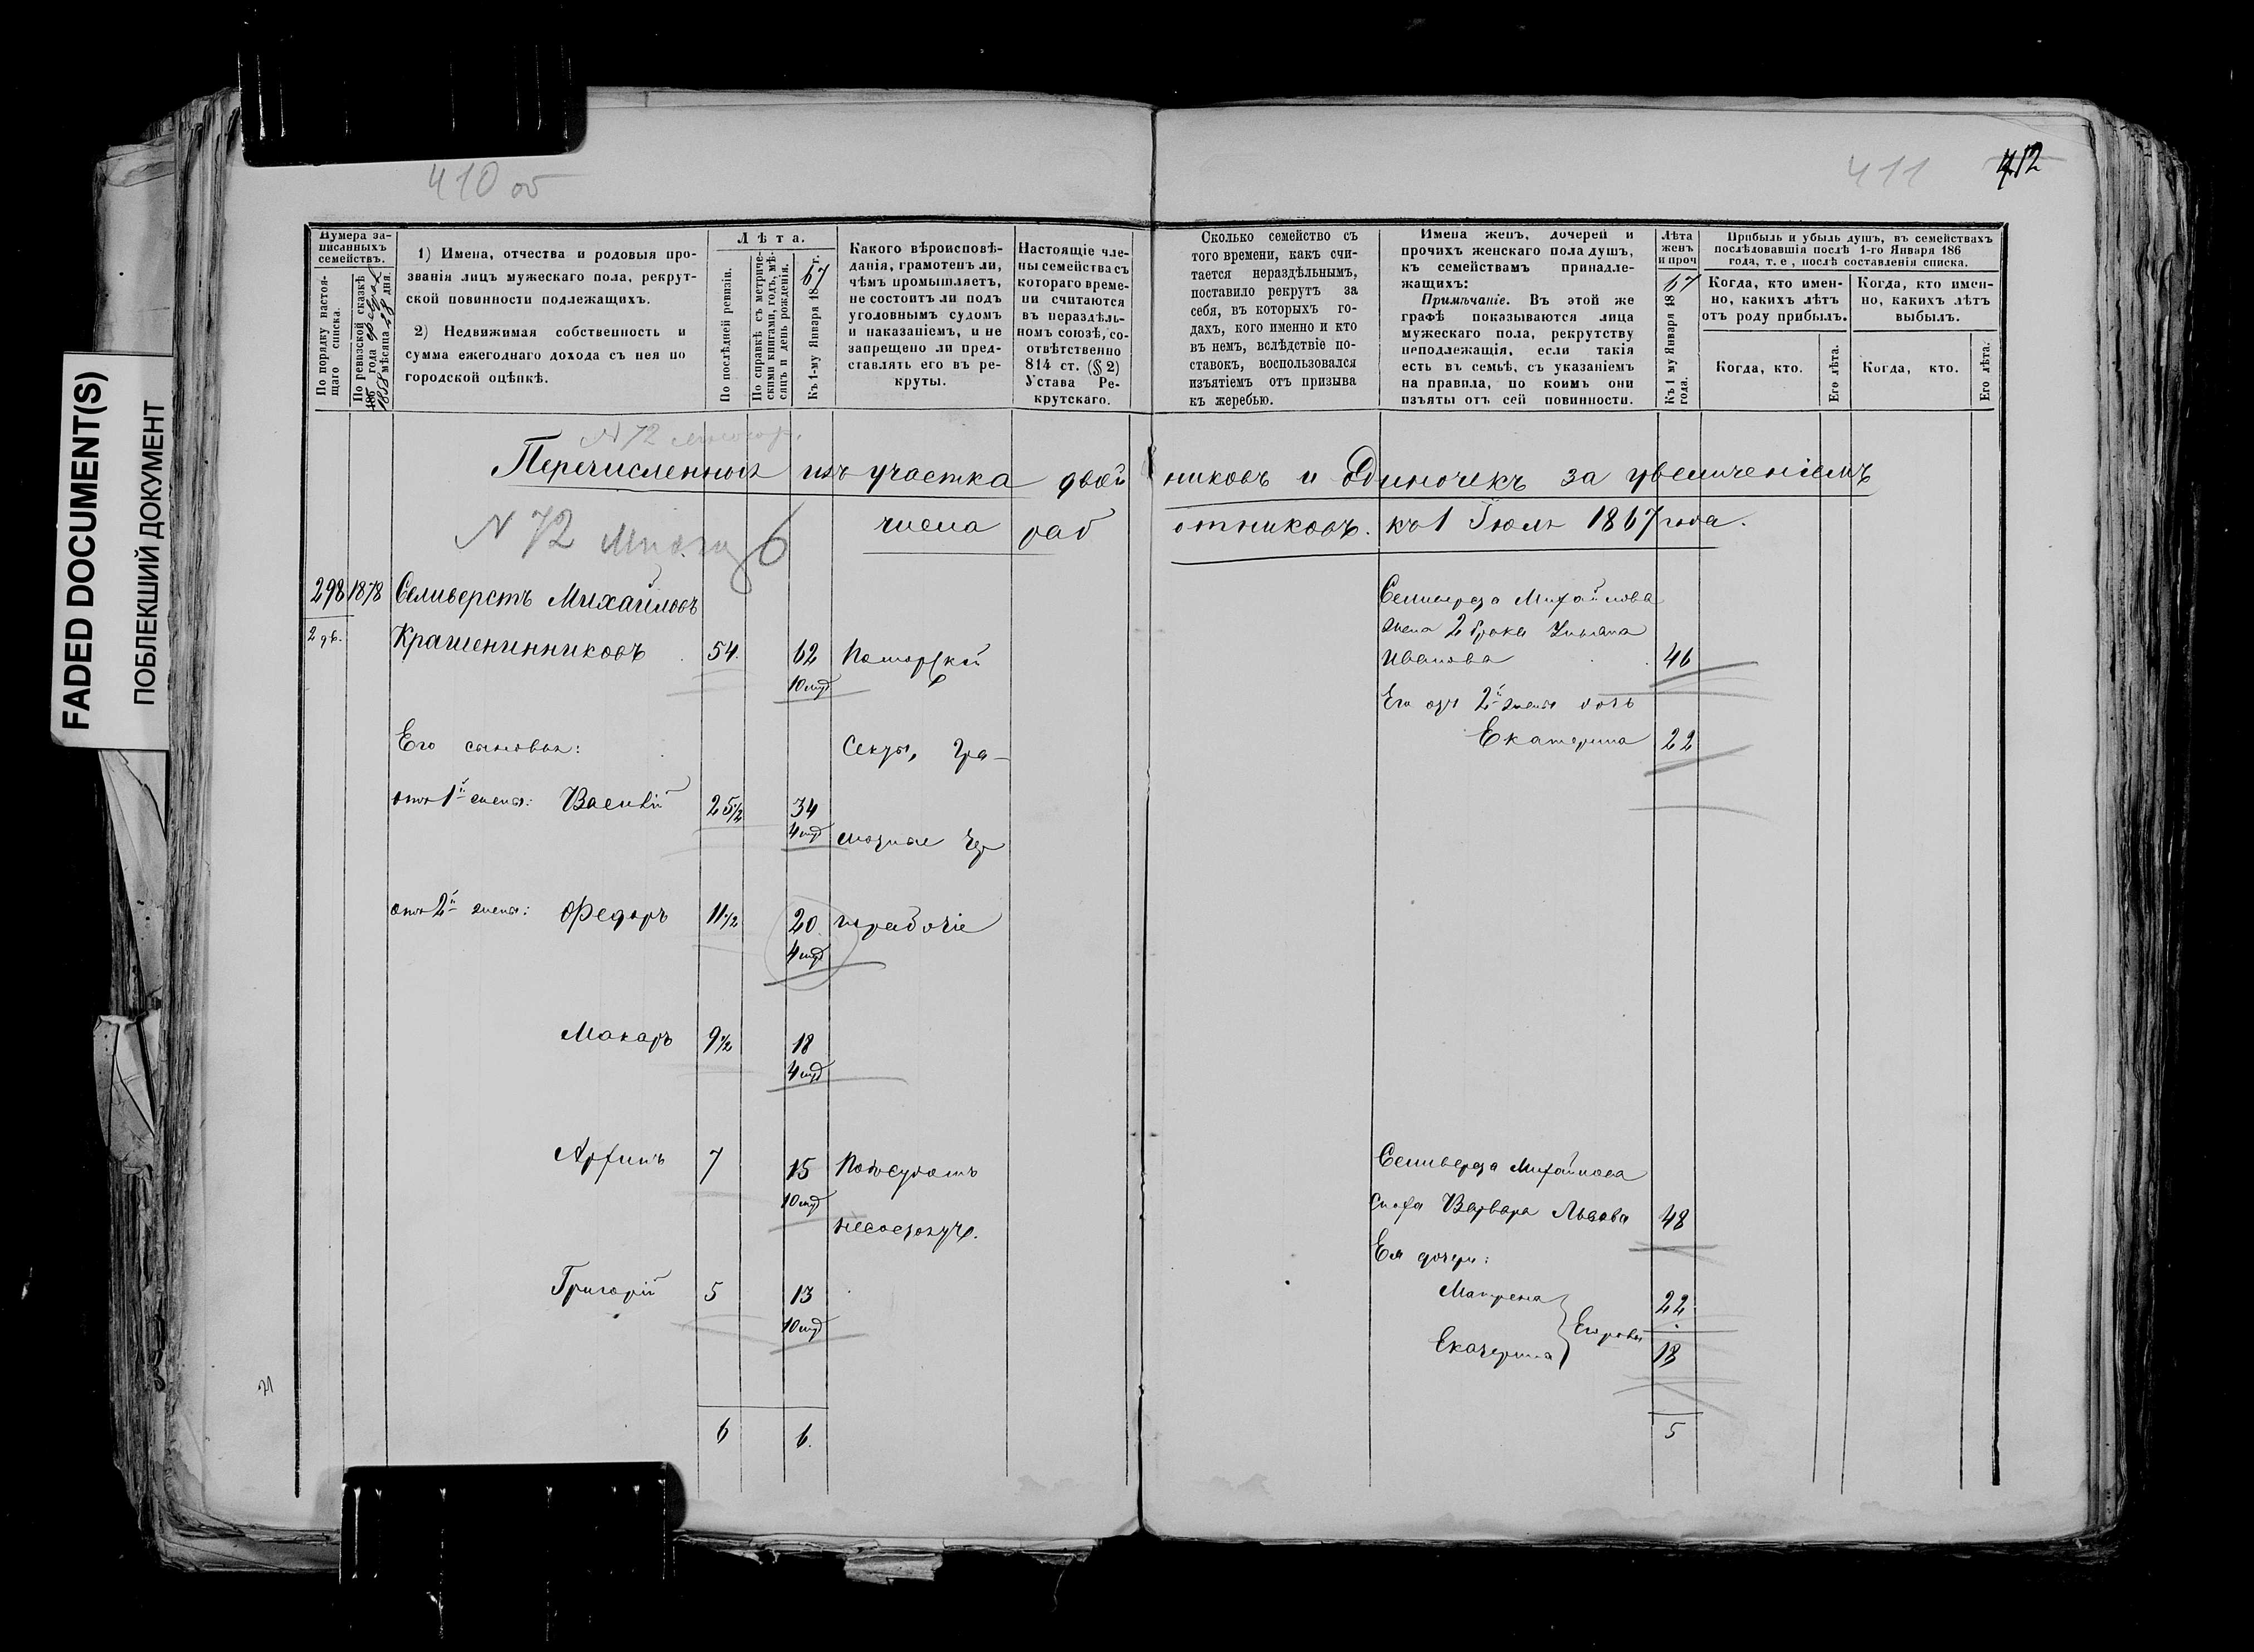 FADED DOCUMENT(S)
ПОБЛЕКШИЙ ДОКУМЕНТ
410 об
411
412
Нумера за-
писанныхъ
семействъ.
По порядку настоя-
щаго списка.
По ревизской сказкѣ
185 года
1858 мѣсяца 28 дня.
1) Имена, отчества и родовыя про-
званія лицъ мужескаго пола, рекрут-
ской повинности подлежащихъ.
2) Недвижимая собственность и
сумма ежегоднаго дохода съ нея по
городской оцѣнкѣ.
Лѣта.
По послѣдней ревизіи.
По справкѣ съ метриче-
скими книгами, годъ, мѣ-
сяцъ и день рожденія.
Къ 1-му Января 1867 г.
Какого вѣроисповѣ-
данія, грамотенъ ли,
чѣмъ промышляетъ,
не состоитъ ли подъ
уголовнымъ судомъ
и наказаніемъ, и не
запрещено ли пред-
ставлять его въ ре-
круты.
Настоящіе чле-
ны семейства съ
котораго време-
ни считаются
въ нераздѣль-
номъ союзѣ, со-
отвѣтственно
814 ст. (§ 2)
Устава Ре-
крутскаго.
Сколько семейство съ
того времени, какъ счи-
тается нераздѣльнымъ,
поставило рекрутъ за
себя, въ которыхъ го-
дахъ, кого именно и кто
въ немъ, вслѣдствіе по-
ставокъ, воспользовался
изъятіемъ отъ призыва
къ жеребью.
Имена женъ, дочерей и
прочихъ женскаго пола душъ,
къ семействамъ принадле-
жащихъ:
Примѣчаніе. Въ этой же
графѣ показываются лица
мужескаго пола, рекрутству
неподлежащія, если такія
есть въ семьѣ, съ указаніемъ
на правила, по коимъ они
изъяты отъ сей повинности.
Лѣта
женъ
и проч
Къ 1 му Января 1867
года.
Прибыль и убыль душъ, въ семействахъ
послѣдовавшія послѣ 1-го Января 186
года, т. е., послѣ составленія списка.
Когда, кто имен-
но, какихъ лѣтъ
отъ роду прибылъ.
Когда, кто имен-
но, какихъ лѣтъ
выбылъ.
Когда, кто.
Его лѣта.
Когда, кто.
Его лѣта.
N 72
Перечисленныя изъ участка двойниковъ и Одиночекъ за увеличеніемъ
N 72
6
числа работниковъ. къ 1 Іюля 1867 года.
298 1878 Селиверстъ Михайловъ
2 дв. Крашенинниковъ 54. 62 Поморской
10 мѣс
Селиверста Михайлова
жена 2 брака Ульяна
Иванова 46
Его отъ 2й жены дочь
Екатерина 22
Его сыновья: Секты, Гра-
отъ 1й жены: Василій 25½ 34
4 мѣс мотные Чер
отъ 2й жены: Федоръ 11½ 20 норабочіе
4 мѣс
Макаръ 9½ 18
4 мѣс
Арфинъ 7 15 Подсудомъ
10 мѣс
несостоуч.
Григорій 5 13
10 мѣс
Селиверста Михайлова
сноха Варвара Львова 48
Ея дочери:
Матрена 22
Егоровы
Екатерина 18
21
6 6. 5